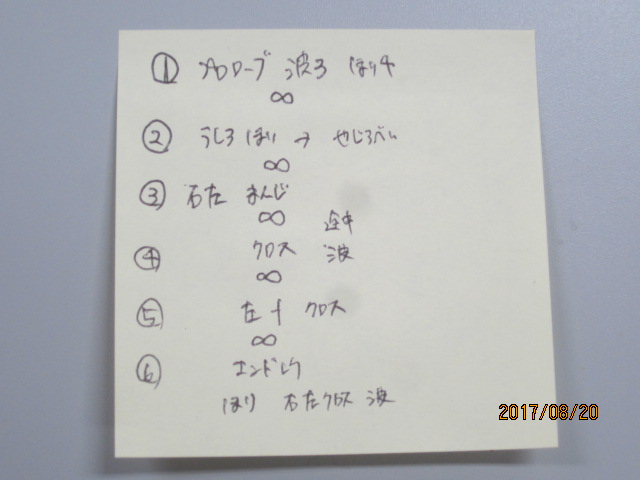 ① プロローグ 波3 ほり4
∞
② うしろ ほり → やじろべい
∞
③ 右左 まんじ
∞ 途中
④ クロス 波
∞
⑤ 左 クロス
∞
⑥ エンドレク
ほり 右左クロス 波
2017/08/20